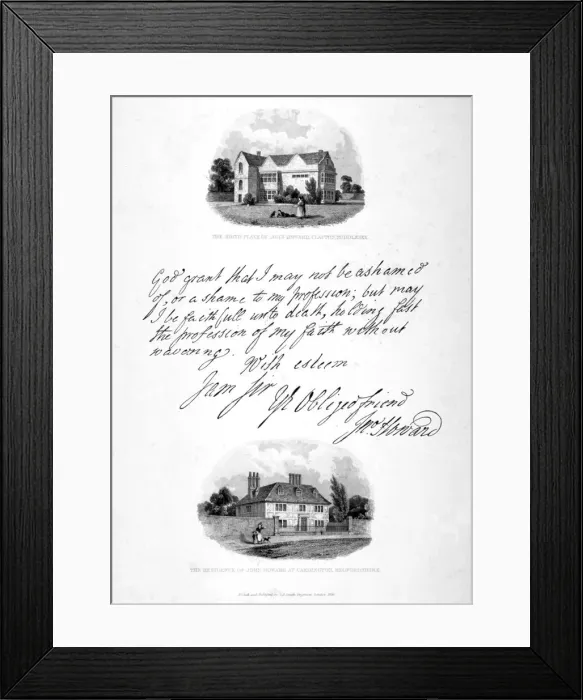 THE BIRTH PLACE OF JOHN HOWARD, CLAPTON, MIDDLESEX.
God grant that I may not be ashamed
of, or a shame to my profession; but may
I be faithfull unto death, holding fast
the profession of my faith without
wavering.
With esteem
I am Sir
Yr Obliged friend
Jno. Howard
THE RESIDENCE OF JOHN HOWARD, AT CARDINGTON, BEDFORDSHIRE.